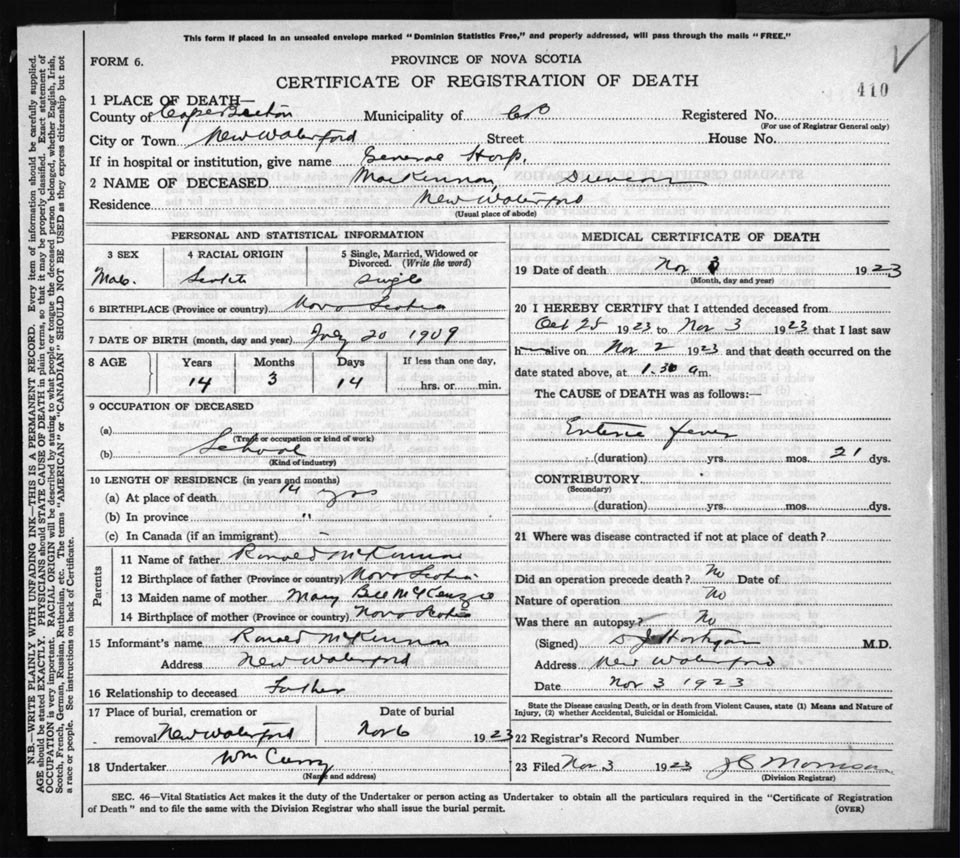 This form if placed in an unsealed envelope marked "Dominion Statistics Free," and properly addressed, will pass through the mails "FREE."
FORM 6.
PROVINCE OF NOVA SCOTIA
CERTIFICATE OF REGISTRATION OF DEATH
410
1 PLACE OF DEATH—
County of Cape Breton Municipality of C.B Registered No.
(For use of Registrar General only)
City or Town New Waterford Street House No.
If in hospital or institution, give name General Hosp.
2 NAME OF DECEASED MacKinnon,
Residence New Waterford
(Usual place of abode)
PERSONAL AND STATISTICAL INFORMATION
3 SEX 4 RACIAL ORIGIN 5 Single, Married, Widowed or
Divorced. (Write the word)
Male. Scotch Single
6 BIRTHPLACE (Province or country) Nova Scotia
7 DATE OF BIRTH (month, day and year) July 20 1909
8 AGE Years Months Days If less than one day,
14 3 14 hrs. or min.
9 OCCUPATION OF DECEASED
(a)
(Trade or occupation or kind of work)
(b) School
(Kind of industry)
10 LENGTH OF RESIDENCE (in years and months)
(a) At place of death 14 yrs
(b) In province "
(c) In Canada (if an immigrant) -
Parents
11 Name of father Ranald McKinnon
12 Birthplace of father (Province or country) Nova Scotia
13 Maiden name of mother Mary Bell McKenzie
14 Birthplace of mother (Province or country) Nova Scotia
15 Informant's name Ranald McKinnon
Address New Waterford
16 Relationship to deceased Father
17 Place of burial, cremation or Date of burial
removal New Waterford Nov 6 1923
18 Undertaker Wm Curry
(Name and address)
MEDICAL CERTIFICATE OF DEATH
19 Date of death Nov 3 1923
(Month, day and year)
20 I HEREBY CERTIFY that I attended deceased from
Oct 25 1923 to Nov 3 1923 that I last saw
h alive on Nov 2 1923 and that death occurred on the
date stated above, at 1.30 a m.
The CAUSE of DEATH was as follows:—
Enteric fever
(duration) yrs. mos. 21 dys.
CONTRIBUTORY
(Secondary)
(duration) yrs. mos. dys.
21 Where was disease contracted if not at place of death?
Did an operation precede death? No Date of
Nature of operation No
Was there an autopsy? No
(Signed) M.D.
Address New Waterford
Date Nov 3 1923
State the Disease causing Death, or in death from Violent Causes, state (1) Means and Nature of
Injury, (2) whether Accidental, Suicidal or Homicidal.
22 Registrar's Record Number
23 Filed Nov 3 1923 Morrison
(Division Registrar)
SEC. 46—Vital Statistics Act makes it the duty of the Undertaker or person acting as Undertaker to obtain all the particulars required in the "Certificate of Registration
of Death" and to file the same with the Division Registrar who shall issue the burial permit.
(OVER)
N.B.—WRITE PLAINLY WITH UNFADING INK—THIS IS A PERMANENT RECORD. Every item of information should be carefully supplied.
AGE should be stated EXACTLY. PHYSICIANS should STATE CAUSE OF DEATH in plain terms, so that it may be properly classified. Exact statement of
OCCUPATION is very important. RACIAL ORIGIN will be described by stating to what people or tongue the deceased person belonged, whether English, Irish,
Scotch, French, German, Russian, Ruthenian, etc. The terms "AMERICAN" or "CANADIAN" SHOULD NOT BE USED as they express citizenship but not
a race or people. See instructions on back of Certificate.